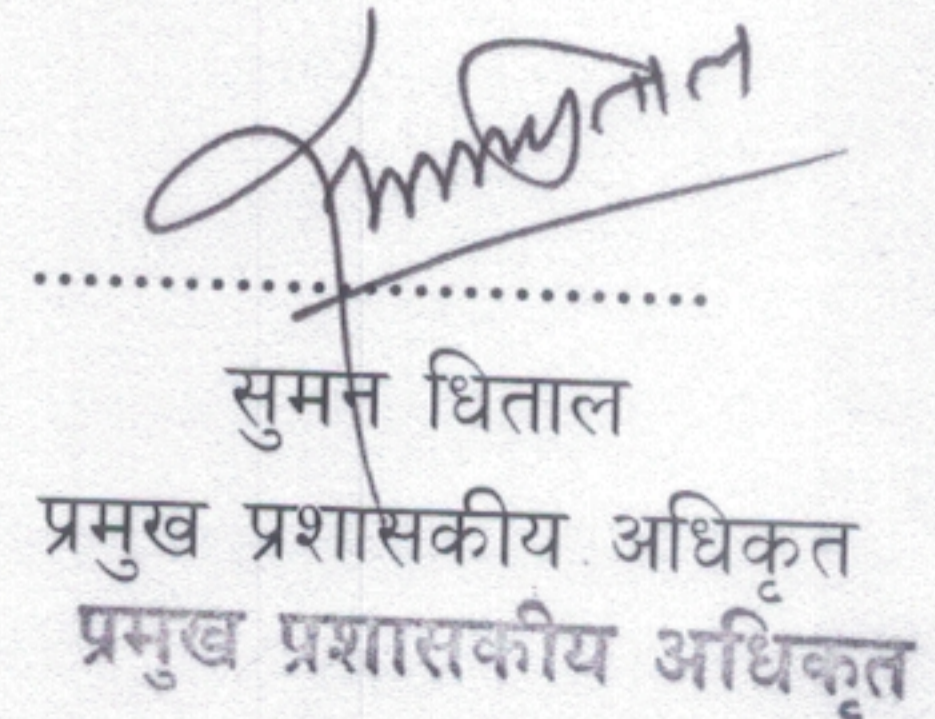 सुमन धिताल
प्रमुख प्रशासकीय अधिकृत
प्रमुख प्रशासकीय अधिकृत